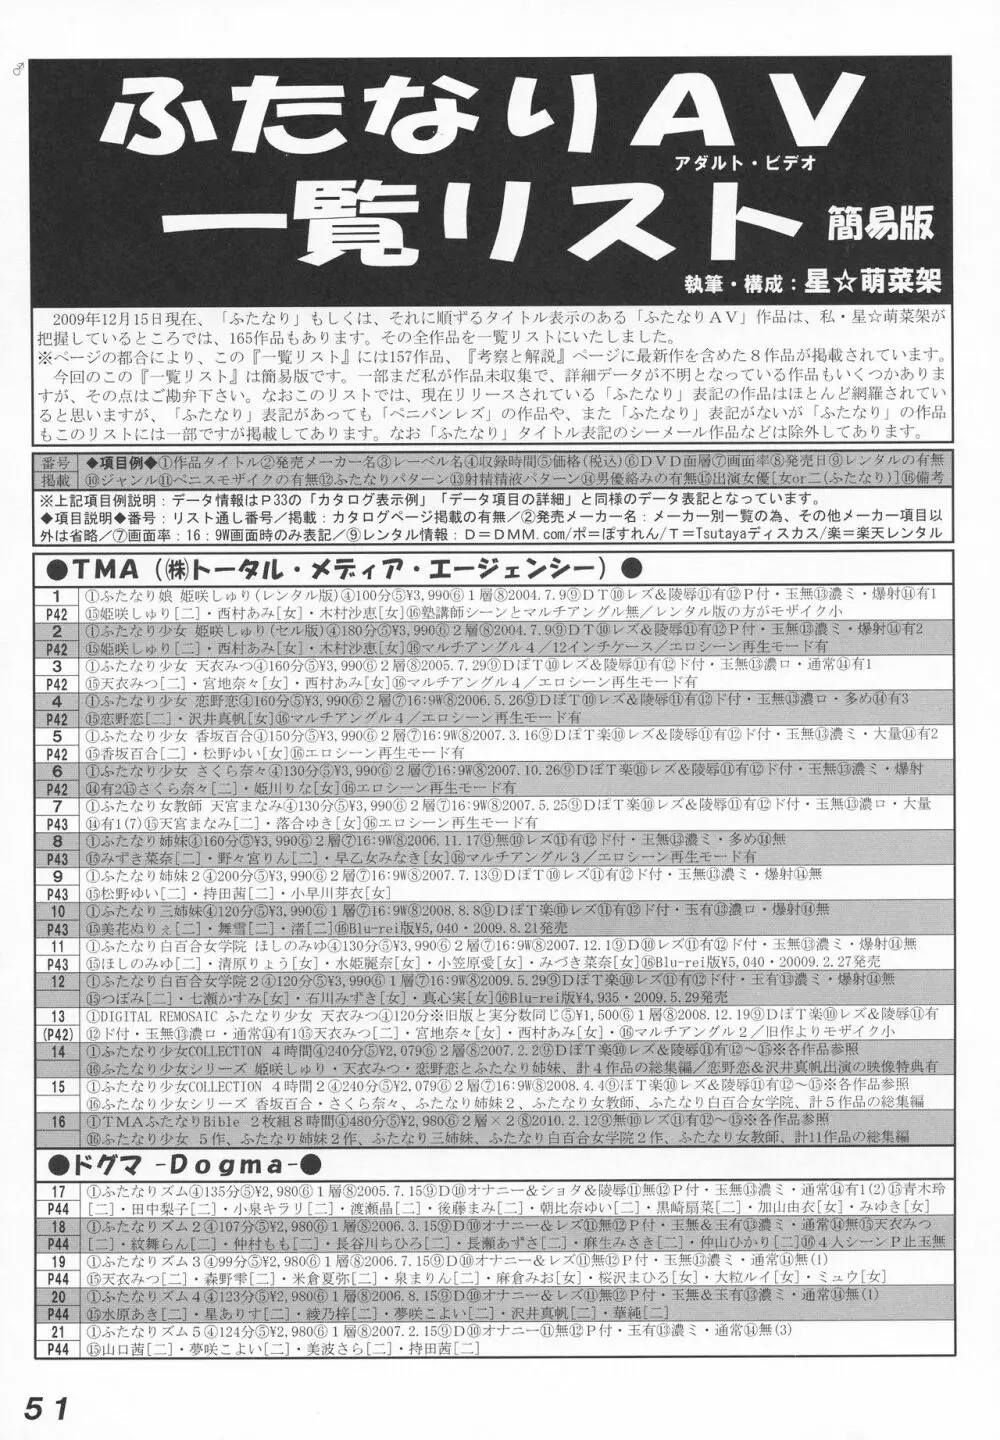 ♂
ふたなりＡＶ
アダルト・ビデオ
一覧リスト 簡易版
執筆・構成：星☆萌菜架
2009年12月15日現在、「ふたなり」もしくは、それに順ずるタイトル表示のある「ふたなりＡＶ」作品は、私・星☆萌菜架が
把握しているところでは、165作品もあります。その全作品を一覧リストにいたしました。
※ページの都合により、この『一覧リスト』には157作品、『考察と解説』ページに最新作を含めた８作品が掲載されています。
今回のこの『一覧リスト』は簡易版です。一部まだ私が作品未収集で、詳細データが不明となっている作品もいくつかありま
すが、その点はご勘弁下さい。なおこのリストでは、現在リリースされている「ふたなり」表記の作品はほとんど網羅されてい
ると思いますが、「ふたなり」表記があっても「ペニバンレズ」の作品や、また「ふたなり」表記がないが「ふたなり」の作品
もこのリストには一部ですが掲載してあります。なお「ふたなり」タイトル表記のシーメール作品などは除外してあります。
番号 ◆項目例◆①作品タイトル②発売メーカー名③レーベル名④収録時間⑤価格(税込)⑥ＤＶＤ面層⑦画面率⑧発売日⑨レンタルの有無
掲載 ⑩ジャンル⑪ペニスモザイクの有無⑫ふたなりパターン⑬射精精液パターン⑭男優絡みの有無⑮出演女優［女or二(ふたなり)］⑯備考
※上記項目例説明：データ情報はＰ33の「カタログ表示例」「データ項目の詳細」と同様のデータ表記となっています。
◆項目説明◆番号：リスト通し番号／掲載：カタログページ掲載の有無／②発売メーカー名：メーカー別一覧の為、その他メーカー項目以
外は省略／⑦画面率：16：9W画面時のみ表記／⑨レンタル情報：Ｄ＝DMM.com/ポ＝ぽすれん/Ｔ＝Tsutayaディスカス/楽＝楽天レンタル
●ＴＭＡ（㈱トータル・メディア・エージェンシー）●
1 ①ふたなり娘 姫咲しゅり(レンタル版)④100分⑤¥3,990⑥１層⑧2004.7.9⑨ＤＴ⑩レズ＆陵辱⑪有⑫Ｐ付・玉無⑬濃ミ・爆射⑭有1
P42 ⑮姫咲しゅり[二]・西村あみ[女]・木村沙恵[女]⑯塾講師シーンとマルチアングル無／レンタル版の方がモザイク小
2 ①ふたなり少女 姫咲しゅり(セル版)④180分⑤¥3,990⑥２層⑧2004.7.9⑨ＤＴ⑩レズ＆陵辱⑪有⑫Ｐ付・玉無⑬濃ミ・爆射⑭有2
P42 ⑮姫咲しゅり[二]・西村あみ[女]・木村沙恵[女]⑯マルチアングル４／12インチケース／エロシーン再生モード有
3 ①ふたなり少女 天衣みつ④160分⑤¥3,990⑥２層⑧2005.7.29⑨ＤぽＴ⑩レズ＆陵辱⑪有⑫ド付・玉無⑬濃ロ・通常⑭有1
P42 ⑮天衣みつ[二]・宮地奈々[女]・西村あみ[女]⑯マルチアングル４／エロシーン再生モード有
4 ①ふたなり少女 恋野恋④160分⑤¥3,990⑥２層⑦16:9W⑧2006.5.26⑨ＤぽＴ⑩レズ＆陵辱⑪有⑫ド付・玉無⑬濃ロ・多め⑭有3
P42 ⑮恋野恋[二]・沢井真帆[女]⑯マルチアングル４／エロシーン再生モード有
5 ①ふたなり少女 香坂百合④150分⑤¥3,990⑥２層⑦16:9W⑧2007.3.16⑨ＤぽＴ⑩レズ＆陵辱⑪有⑫ド付・玉無⑬濃ミ・大量⑭有2
P42 ⑮香坂百合[二]・松野ゆい[女]⑯エロシーン再生モード有
6 ①ふたなり少女 さくら奈々④130分⑤¥3,990⑥２層⑦16:9W⑧2007.10.26⑨ＤぽＴ楽⑩レズ＆陵辱⑪有⑫ド付・玉無⑬濃ミ・爆射
P42 ⑭有2⑮さくら奈々[二]・姫川りな[女]⑯エロシーン再生モード有
7 ①ふたなり女教師 天宮まなみ④130分⑤¥3,990⑥２層⑦16:9W⑧2007.5.25⑨ＤぽＴ楽⑩レズ＆陵辱⑪有⑫ド付・玉無⑬濃ロ・大量
P43 ⑭有1(7)⑮天宮まなみ[二]・落合ゆき[女]⑯エロシーン再生モード有
8 ①ふたなり姉妹④160分⑤¥3,990⑥２層⑦16:9W⑧2006.11.17⑨無⑩レズ⑪有⑫ド付・玉無⑬濃ミ・多め⑭無
P43 ⑮みずき菜奈[二]・野々宮りん[二]・早乙女みなき[女]⑯マルチアングル３／エロシーン再生モード有
9 ①ふたなり姉妹２④200分⑤¥3,990⑥２層⑦16:9W⑧2007.7.13⑨ＤぽＴ⑩レズ⑪有⑫ド付・玉無⑬濃ミ・爆射⑭無
P43 ⑮松野ゆい[二]・持田茜[二]・小早川芽衣[女]
10 ①ふたなり三姉妹④120分⑤¥3,990⑥１層⑦16:9W⑧2008.8.8⑨ＤぽＴ楽⑩レズ⑪有⑫ド付・玉有⑬濃ロ・爆射⑭無
P43 ⑮美花ぬりぇ[二]・舞雪[二]・渚[二]⑯Blu-rei版¥5,040・2009.8.21発売
11 ①ふたなり白百合女学院 ほしのみゆ④130分⑤¥3,990⑥２層⑦16:9W⑧2007.12.1⑨ＤぽＴ楽⑩レズ⑪有⑫ド付・玉無⑬濃ミ・爆射⑭無
P43 ⑮ほしのみゆ[二]・清原りょう[女]・水姫麗奈[女]・小笠原愛[女]・みづき菜奈[女]⑯Blu-rei版¥5,040・2009.2.27発売
12 ①ふたなり白百合女学院２④120分⑤¥3,990⑥１層⑦16:9W⑧2009.5.29⑨ＤぽＴ楽⑩レズ⑪有⑫ド付・玉有⑬濃ミ・爆射⑭無
P43 ⑮つぼみ[二]・七瀬かすみ[女]・石川みずき[女]・真心実[女]⑯Blu-rei版¥4,935・2009.5.29発売
13 ①DIGITAL REMOSAIC ふたなり少女 天衣みつ④120分※旧版と実分数同じ⑤¥1,500⑥１層⑧2008.12.19⑨ＤぽＴ楽⑩レズ＆陵辱⑪有
(P42) ⑫ド付・玉無⑬濃ロ・通常⑭有1⑮天衣みつ[二]・宮地奈々[女]・西村あみ[女]・⑯マルチアングル２／旧作よりモザイク小
14 ①ふたなり少女COLLECTION ４時間④240分⑤¥2,079⑥２層⑧2007.2.2⑨ＤぽＴ楽⑩レズ＆陵辱⑪有⑫～⑮※各作品参照
⑯ふたなり少女シリーズ 姫咲しゅり・天衣みつ・恋野恋とふたなり姉妹、計４作品の総集編／恋野恋＆沢井真帆出演の映像特典有
15 ①ふたなり少女COLLECTION ４時間２④240分⑤¥2,079⑥２層⑦16:9W⑧2008.4.4⑨ぽＴ楽⑩レズ＆陵辱⑪有⑫～⑮※各作品参照
⑯ふたなり少女シリーズ 香坂百合・さくら奈々、ふたなり姉妹２、ふたなり女教師、ふたなり白百合女学院、計５作品の総集編
16 ①ＴＭＡふたなりBible ２枚組８時間④480分⑤¥2,980⑥２層×２⑧2010.2.12⑨無⑩レズ⑪有⑫～⑮※各作品参照
⑯ふたなり少女 ５作、ふたなり姉妹２作、ふたなり三姉妹、ふたなり白百合女学院２作、ふたなり女教師、計11作品の総集編
●ドグマ -Dogma-●
17 ①ふたなりズム④135分⑤¥2,980⑥１層⑧2005.7.15⑨Ｄ⑩オナニー＆ショタ＆陵辱⑪無⑫Ｐ付・玉無⑬濃ミ・通常⑭有1(2)⑮青木玲
P44 [二]・田中梨子[二]・小泉キラリ[二]・渡瀬晶[二]・後藤まみ[二]・朝比奈ゆい[二]・黒崎扇菜[二]・加山由衣[女]・みゆき[女]
18 ①ふたなりズム２④107分⑤¥2,980⑥１層⑧2006.3.15⑨Ｄ⑩オナニー＆レズ⑪無⑫Ｐ付・玉無＆玉有⑬濃ミ・通常⑭無⑮天衣みつ
P44 [二]・紋舞らん[二]・仲村もも[二]・長谷川ちひろ[二]・長瀬あずさ[二]・麻生みさき[二]・仲山ひかり[二]⑯４人シーンＰ止玉無
19 ①ふたなりズム３④99分⑤¥2,980⑥１層⑧2006.7.15⑨Ｄ⑩オナニー＆レズ⑪無⑫Ｐ付・玉有⑬濃ミ・通常⑭無(1)
P44 ⑮天衣みつ[二]・森野雫[二]・米倉夏弥[二]・泉まりん[二]・麻倉みお[女]・桜沢まひる[女]・大粒ルイ[女]・ミュウ[女]
20 ①ふたなりズム４④123分⑤¥2,980⑥１層⑧2006.8.15⑨Ｄ⑩オナニー＆レズ⑪無⑫Ｐ付・玉無＆玉有⑬濃ミ・通常⑭無(1)
P44 ⑮水原あき[二]・星ありす[二]・綾乃梓[二]・夢咲こよい[二]・沢井真帆[二]・華純[二]
21 ①ふたなりズム５④124分⑤¥2,980⑥１層⑧2007.2.15⑨Ｄ⑩オナニー⑪無⑫Ｐ付・玉有⑬濃ミ・通常⑭無(3)
P44 ⑮山口茜[二]・夢咲こよい[二]・美波さら[二]・持田茜[二]
51